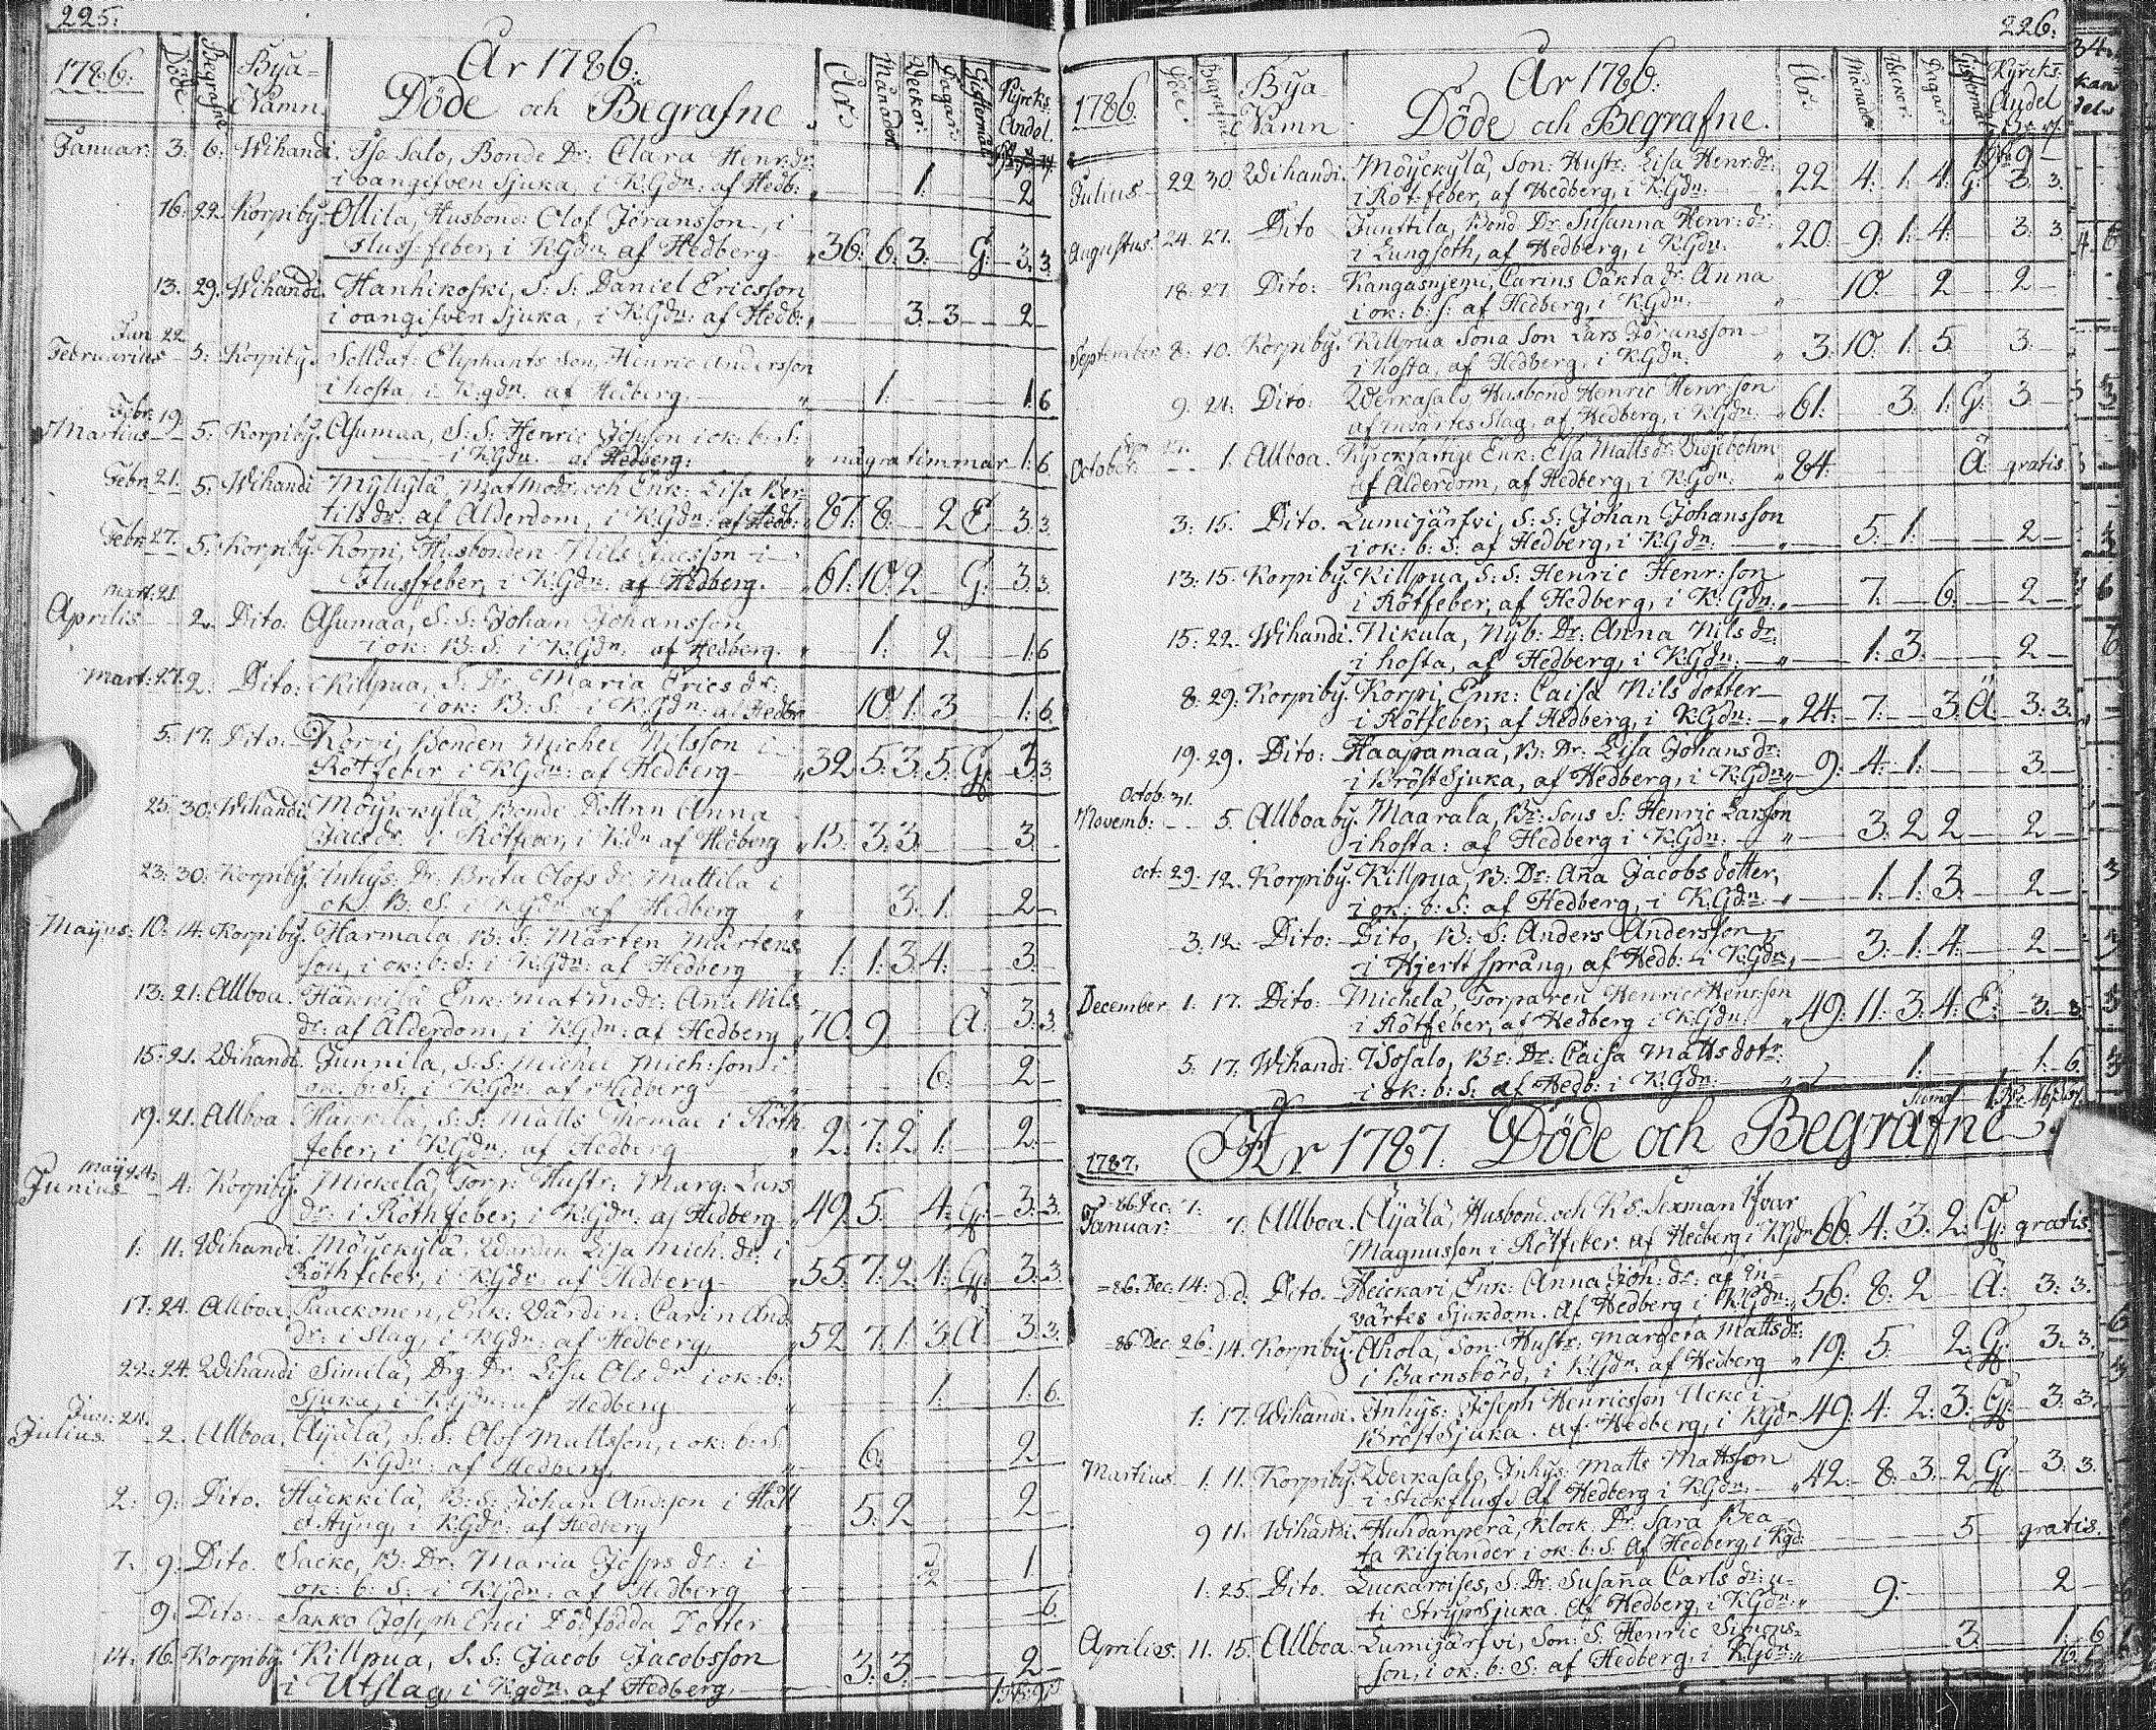 225:
1786: Döde Begrafne Bya-Namn År 1786. År: Månader Weckor: Dagar: Kyrcks
Döde och Begrafne Andel
Januar: 3: 6: Wihandi. Iso Salo, Bonde Dr: Clara Henr: dr:
i oangifven Sjuka, i K:Gdn: af Hedb: 1: 2
16: 22. Korpiby. Ollila, Husbond: Olof Jöransson, i
Flussfeber, i K:Gdn af Hedberg 36: 6: 3: G: 3: 3.
13. 29. Wihandi. Hanhikoski, S: S: Daniel Ericsson
i oangifven Sjuka, i K:Gdn: af Hedb: 3: 3 2
Jan 22
Februarius 5: Korpiby. Solldat: Eliphants Son, Henric Andersson
i hosta, i K:gdn. af Hedberg 1: 1: 6
Febr: 19.
Martius 5: Korpiby. Asumaa, S: S: Henric Johsson i ok: b: S:
i K:Gdn. af Hedberg: några timmar 1: 6
Febr: 21. 5: Wihandi Mylkylä, Matmodr: och Enk: Lisa Ber-
tils dr: af Ålderdom, i K:Gdn: af Hedb: 87: 8: 2 E 3: 3
Febr: 27. 5: Korpiby. Korpi, Husbonden Nils Jacsson i
Flussfeber, i K:Gdn: af Hedberg. 61: 10: 2 G: 3: 3
Mart: 21
Aprilis 2. Dito: Asumaa, S: S: Johan Johansson
i ok: B: S: i K:Gdn: af Hedberg. 1: 2 1: 6
Mart: 27. 2: Dito: Killpua, S: Dr Maria Erics dr:
i ok: B: S: i K:Gdn: af Hedbr 10: 1: 3 1: 6
5: 17. Dito. Korpi, Bonden Michel Nilsson i
Rötfeber i K:Gdn: af Hedberg 32: 5: 3: 5: G: 3: 3
25. 30: Wihandi Möyckylä Bonde Dottrn Anna
Jacs dr i Rötfeber, i K:dn af Hedberg 15: 3: 3: 3.
23: 30: Korpiby. Inhys: Dr. Brita Olofs dr Mattila i
ok: B: S: i K:Gdn af Hedberg 3: 1: 2
Majus: 10: 14: Korpiby. Harmala B: S: Mårten Mårtens
son, i ok: b: S: i K:Gdn: af Hedberg 1: 1: 3: 4: 3
13: 21: Allboa. Häkkilä Enk: Matmodr: Ana Nils
dr: af Ålderdom, i K:Gdn: af Hedberg 70: 9 Ä: 3: 3
15: 21. Wihandi. Junnila, S: S: Michel Mich: son i
ok: b: S: i K:Gdn: af Hedberg 6: 2
19. 21. Allboa. Häkkilä, S: S: Matts Thomae i Röth
feber, i K:Gdn: af Hedberg 2: 7: 2: 1: 2:
Junius 4: Korpiby. Mickelä, Torp: Hustr: Marg: Lars
dr: i Röthfeber, i K:Gdn: af Hedberg 49: 5: 4: G: 3: 3.
1: 11. Wihandi. Möyckylä, Wärdin Lisa Mich: dr: i
Röthfeber, i K:Gdn: af Hedberg 55: 7: 2: 4: G: 3: 3.
17: 24. Allboa. Paackonen, Enk: Wärdin: Carin And:
dr: i Slag, i K:Gdn: af Hedberg, 52 7: 1: 3: Ä 3: 3.
22: 24. Wihandi Similä, Drg: Dr. Lisa Ols dr i ok: b:
Sjuka, i K:Gdn: af Hedberg 1: 1: 6.
Jun: 24.
Julius 2. Allboa. Äyälä, S: S: Olof Mattsson, i ok: b: S:
i K:Gdn: af Hedberg. 6: 2
2: 9: Dito. Häckkilä, B: S: Johan And:son i Håll
o Styng, i K:Gdn: af Hedberg 5: 2 2
7. 9: Dito. Sacko, B: Dr: Maria Josps dr: i
ok: b: S: i K:Gdn: af Hedberg 1
9: Dito. Sakko Joseph Erici Dödfödda Dotter 6.
14. 16. Korpiby Killpua, S. S: Jacob Jacobsson
i Utslag i K:gdn. af Hedberg, 3: 3: 2
226:
1786. Döde Begrafne Bya-Namn År 1786. År: Månader Weckor: Dagar Kyrcks:
Döde och Begrafne. Andel
Julius 22 30. Wihandi. Möyckylä, Son: Hustr: Lisa Henr: dr:
i Röt-feber, af Hedberg, i K:Gdn: 22 4: 1: 4: G: 3. 3.
Augustus: 24. 27. Dito Junttila, Bond Dr Susanna Henr: dr:
i Lungsoth, af Hedberg, i K:Gdn. 20: 9: 1: 4: 3: 3
18: 27 Dito: Kangasnjemi, Carins Oäkta dr. Anna
i ok: b: s: af Hedberg, i K:Gdn. 10: 2 2
September 8: 10. Korpiby. Killpua Sona Son Lars Joransson
i Hosta, af Hedberg, i K:Gdn. 3: 10: 1: 5 3.
9. 24: Dito: Werkasalo, Husbond Henric Henr: son
af invärtes Slag, af Hedberg, i K:Gdn 61: 3: 1: G: 3
October: 27. 1: Allboa. Kyrckfattige Enk: Elsa Matts dr
af Ålderdom, af Hedberg, i K:Gdn. 84: Ä gratis
3: 15. Dito. Lumijärfvi, S: S: Johan Johansson
i ok: b: S: af Hedberg, i K:Gdn: 5: 1: 2
13: 15. Korpiby. Killpua, S: S: Henric Henr: son
i Rötfeber, af Hedberg, i K: Gdn. 7: 6: 2
15: 22. Wihandi. Nikula, Nyb: Dr: Anna Nils dr:
i hosta, af Hedberg, i K:Gdn: 1: 3: 2
8: 29. Korpiby. Korpi, Enk: Caisa Nils dotter
i Rötfeber, af Hedberg, i K:Gdn: 24: 7: 3: Ä 3: 3.
19. 29. Dito: Haapamaa, B: Dr. Lisa Johans dr:
i BröstSjuka, af Hedberg, i K:Gdn 9: 4: 1: 3
Octob: 31.
Novemb: 5. Allboaby. Maarala, Br: Sons S: Henric Larsson
i hosta: af Hedberg i K:Gdn: 3: 2 2 2
Oct: 29. 12. Korpiby. Killpua, B: Dr: Aña Jacobs dotter,
i ok: b: S: af Hedberg, i K:Gdn: 1: 1: 3 2
3: 12. Dito: Dito, B: S: Anders Andersson
i Hjertt språng, af Hedb: i K:Gdn: 3: 1: 4: 2
December. 1: 17. Dito: Michelä, Torparen Henric Henr:son
i Rötfeber, af Hedberg i K:Gdn: 49: 11: 3: 4: E: 3. 3
5. 17. Wihandi. Isosalo, Br: Dr: Caisa Matts dotr
i ok: b: S: af Hedb: i K:Gdn: 1: 1: 6
1787. År 1787. Döde och Begrafne
86 Dec: 7:
Januar: 7. Allboa. Äyälä, Husbond och K S: Sexman Ifvar
Magnusson i Rötfeber. af Hedberg i K:Gdn 66: 4: 3: 2: G: gratis
86: Dec: 14: d.d. Dito. Heickari, Enk: Anna Joh: dr: af in-
värtes Sjukdom. Af Hedberg i K:Gdn: 56: 8: 2 Ä: 3: 3.
86 Dec 26. 14. Korpiby. Ahola, Son: Hustr: Margeta Matts dr:
i Barnsbörd, i K:Gdn: af Hedberg 19: 5: 2. G: 3: 3.
1: 17. Wihandi. Inhys: Joseph Henricsson i
BröstSjuka. af Hedberg, i K:Gdn 49: 4: 2: 3: G: 3. 3.
Martius 1: 11. Korpiby. Werkasalo, Inhys: Matts Mattsson
i Stickfluss. Af Hedberg i K:Gdn. 42: 8: 3: 2 G: 3: 3.
9 11. Wihandi. Huhdanperä, Klock. Dr. Sara Bea
ta Kiljander i ok: b: S. Af Hedberg, i K:gd: 5 gratis.
1: 25. Dito. Luckaroises, S: Dr. Susaña Carls dr: u-
ti StrypSjuka. Af Hedberg, i K:Gdn: 9: 2
Aprilies. 11. 15. Allboa. Lumijärfvi, Son: S. Henric Simons-
son, i ok: b: S: af Hedberg, i K:Gdn: 3. 1: 6